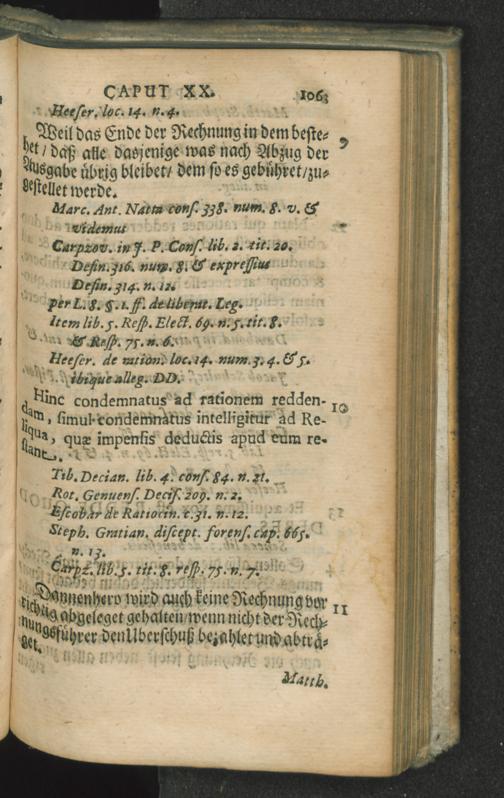 CAPUT XX. 1063
Heeser. loc. 14. n. 4.
Weil das Ende der Rechnung in dem beste-
het / daß alle dasjenige was nach Abzug der 9
Ausgabe übrig bleibet / dem so es gebühret / zu-
gestellet werde.
Marc. Ant. Natta cons. 338. num. 8. v. &
videmus
Carpzov. in J. P. Cons. lib. 2. tit. 20.
Defin. 316. num. 8. & expressius
Defin. 314. n. 12.
per L. 8. §. 1. ff. de liberat. Leg.
Item lib. 5. Resp. Elect. 69. n. 5. tit. 8.
& Resp. 75. n. 6.
Heeser. de ration. loc. 14. num. 3. 4. & 5.
ibique alleg. DD.
Hinc condemnatus ad rationem redden- 10
dam, simul condemnatus intelligitur ad Re-
liqua, quæ impensis deductis apud eum re-
stant.
Tib. Decian. lib. 4. cons. 84. n. 21.
Rot. Genuens. Decis. 209. n. 2.
Escobar de Ratiocin. c. 31. n. 12.
Steph. Gratian. discept. forens. cap. 665.
n. 13.
Carpz. lib. 5. tit. 8. resp. 75. n. 7.
Dannenhero wird auch keine Rechnung vor 11
richtig abgeleget gehalten / wenn nicht der Rech-
nungsführer den Uberschuß bezahlet und abträ-
get.
Matth.